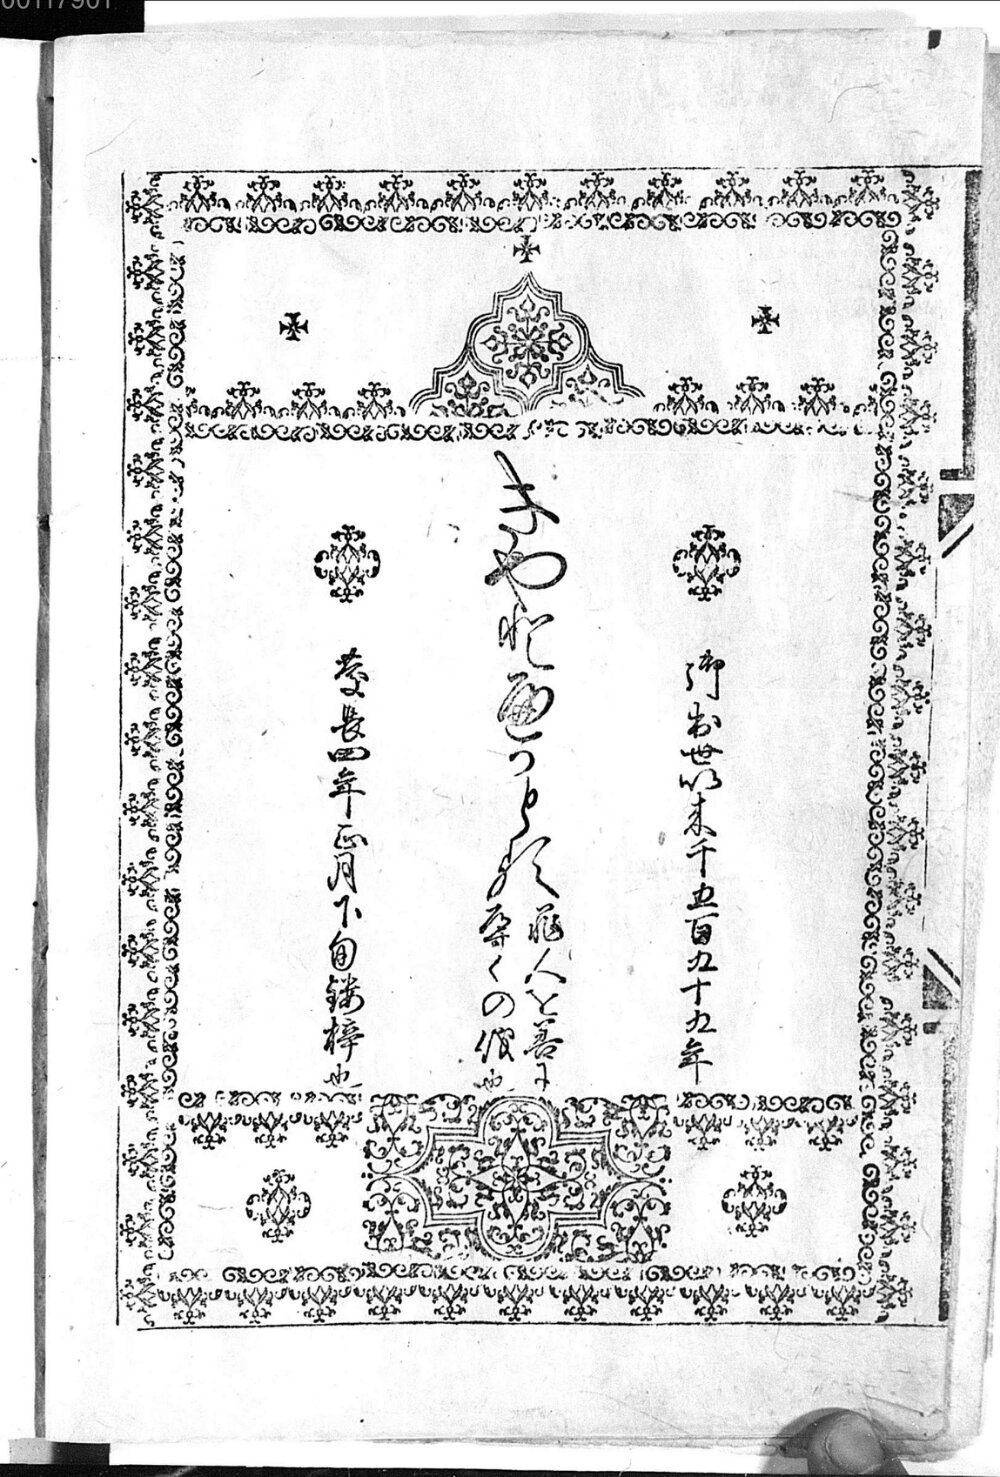 00117901
御出世以来千五百九十九年
きやとへかとる
罪人を善に
導くの儀也
慶長四年正月下旬鏤梓也